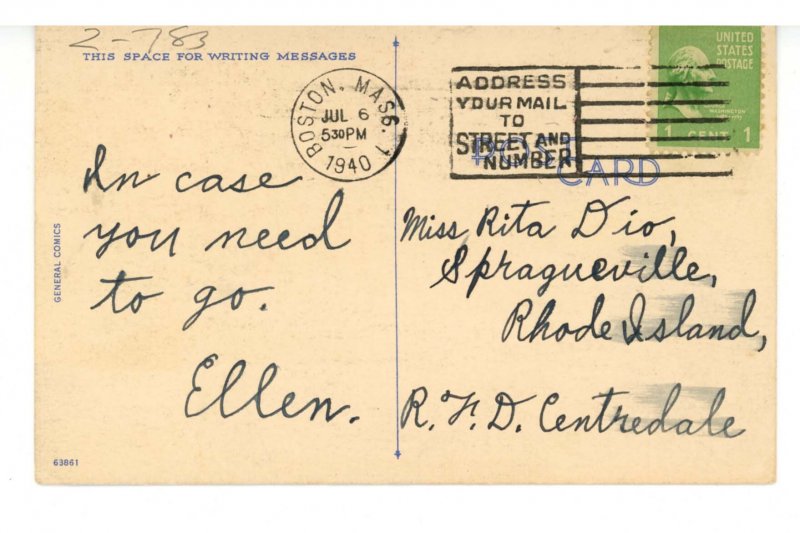 2-783
THIS SPACE FOR WRITING MESSAGES
GENERAL COMICS
In case
you need
to go.
Ellen.
63861
BOSTON, MASS. 1
JUL 6
530PM
1940
ADDRESS
YOUR MAIL
TO
STREET AND
NUMBER
POST
CARD
UNITED
STATES
POSTAGE
WASHINGTON
1 CENT 1
Miss Rita Dio,
Spragueville,
Rhode Island,
R.F.D. Centredale